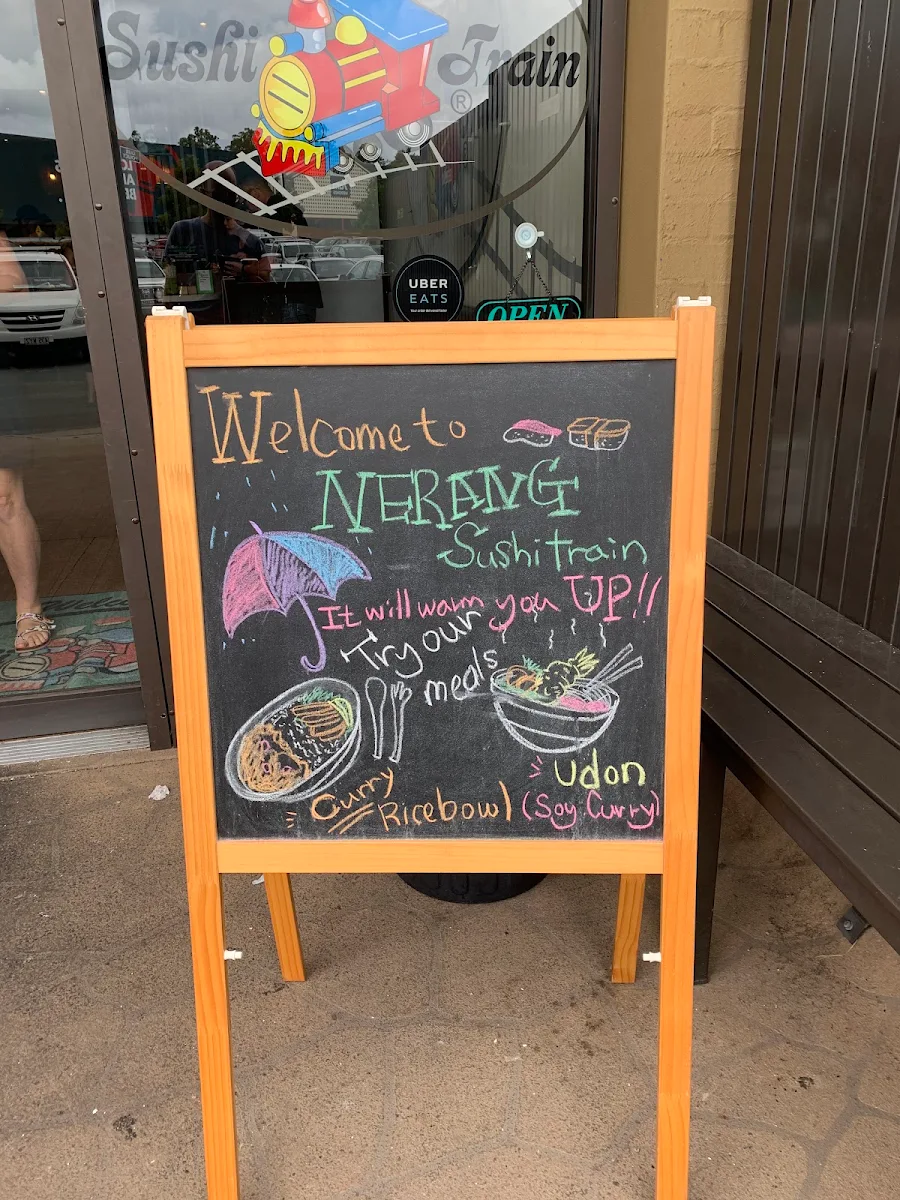 Sushi Train
®
UBER
EATS
OPEN
Welcome to
NERANG
Sushi train
It will warm you UP!!
Try our
meals
Udon
(Soy Curry)
Curry
Ricebowl